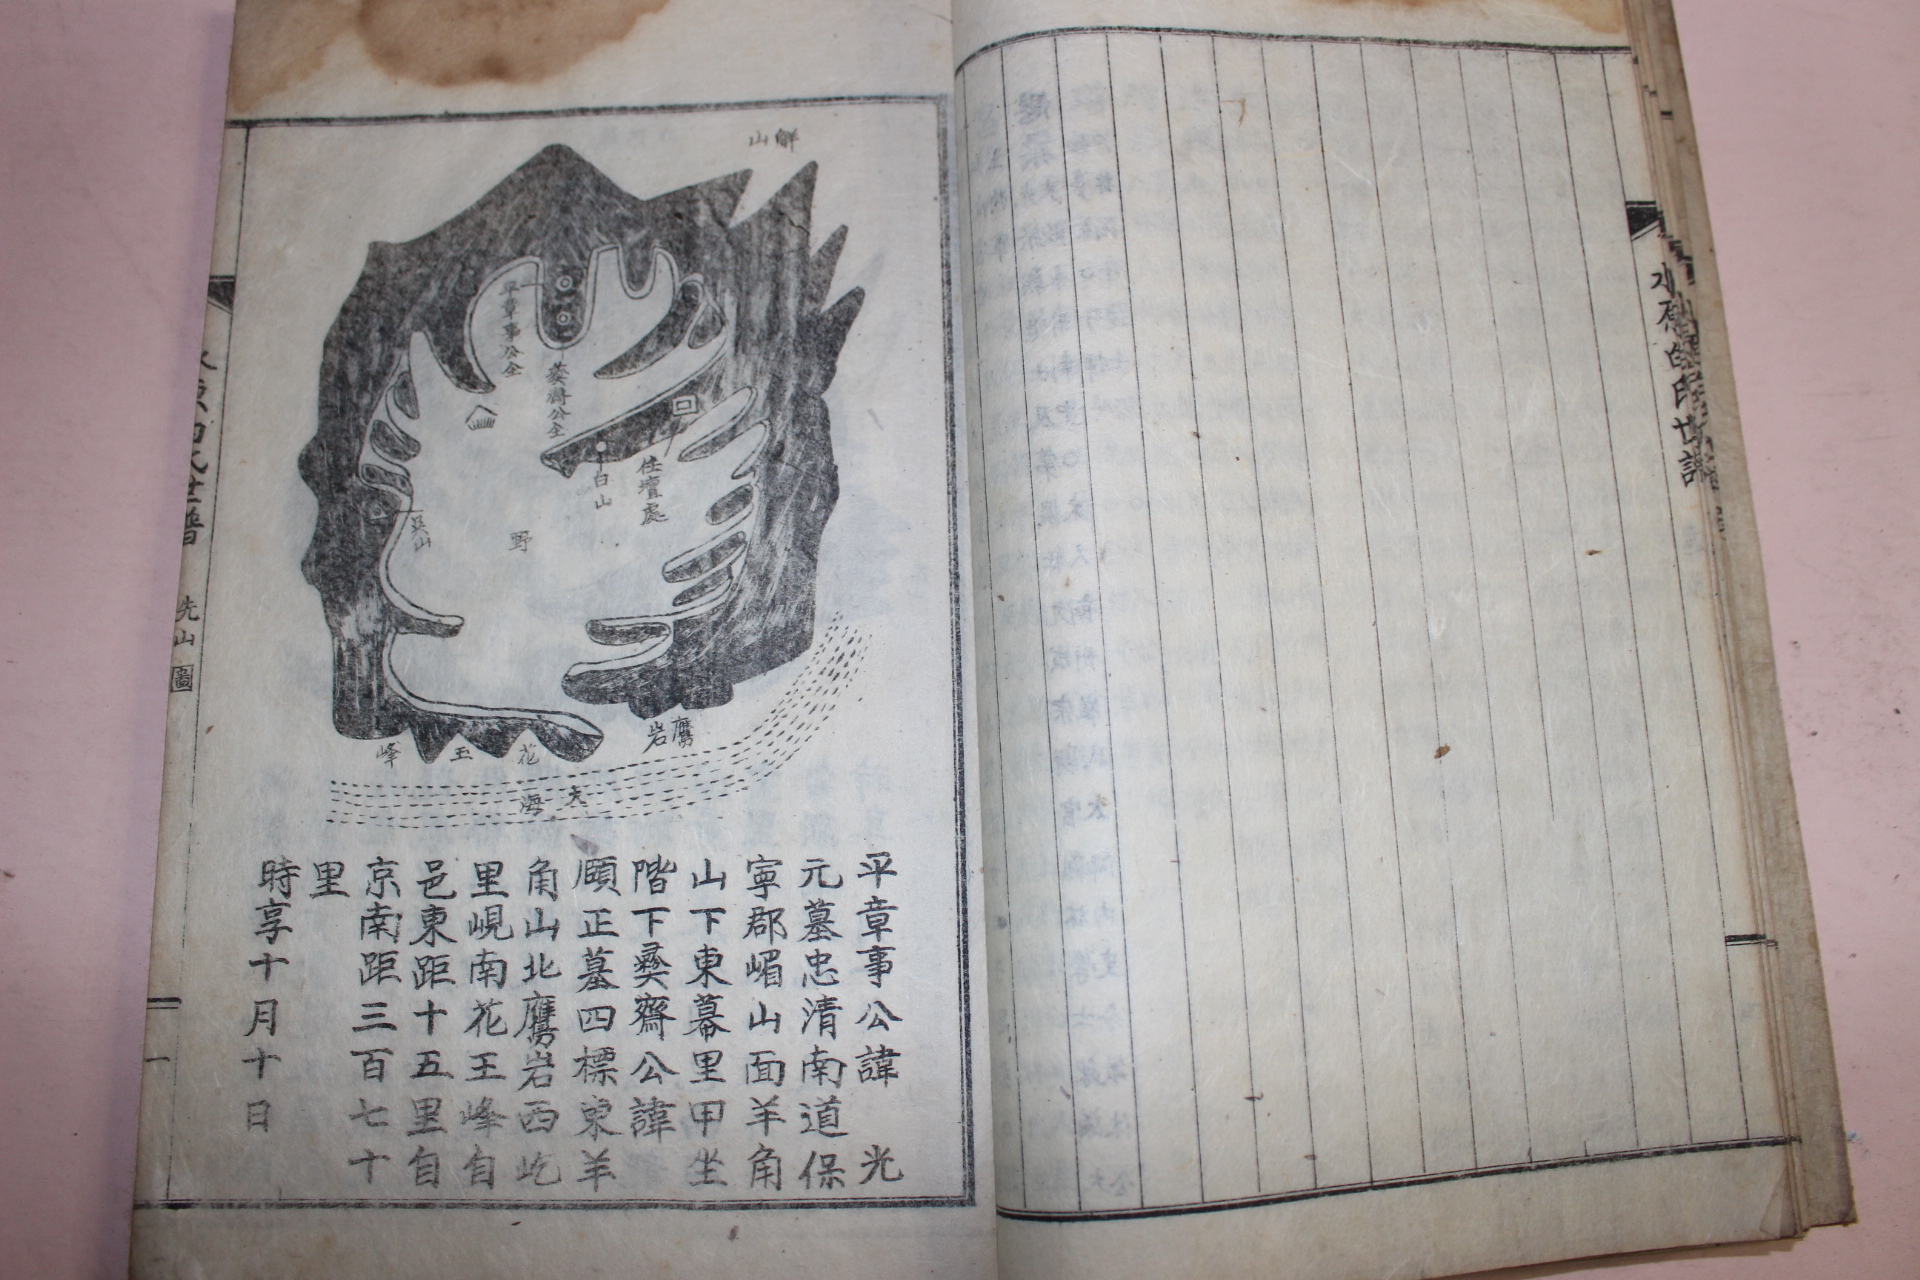 水原白氏世譜
觧山
平章事公仝
彛齋公仝
白山
住壇處
吳山
野
鷹岩
花玉峰
大海
平章事公諱 光
元墓忠清南道保
寧郡嵋山面羊角
山下東幕里甲坐
階下彛齋公諱
頤正墓四標東羊
角山北鷹岩西屹
里峴南花王峰自
邑東距十五里自
京南距三百七十
里
時享十月十日
水原白氏世譜
先山圖
一